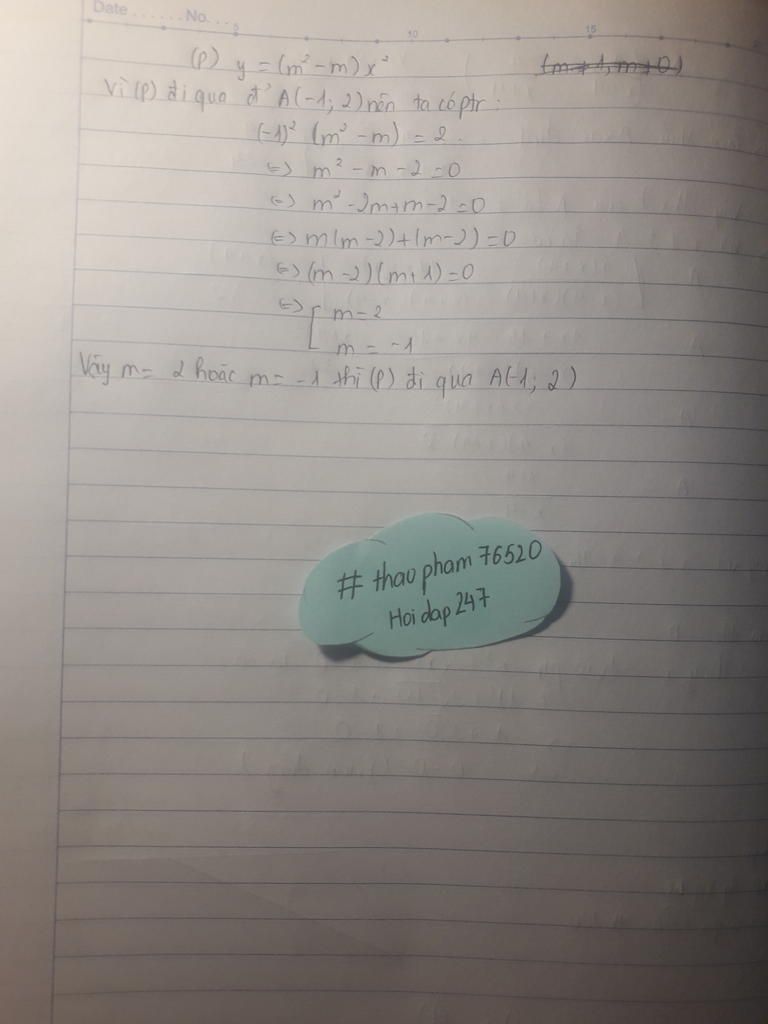 Date ...... No. ...
5 10 15
(P) y = (m² - m) x² (m ≠ 1, m ≠ 0)
Vì (P) đi qua đ' A(-1; 2) nên ta có ptr:
(-1)² (m² - m) = 2
<=> m² - m - 2 = 0
<=> m² - 2m + m - 2 = 0
<=> m(m - 2) + (m - 2) = 0
<=> (m - 2)(m + 1) = 0
<=> [ m = 2
m = -1
Vậy m = 2 hoặc m = -1 thì (P) đi qua A(-1; 2)
# thao pham 76520
Hoi dap 247